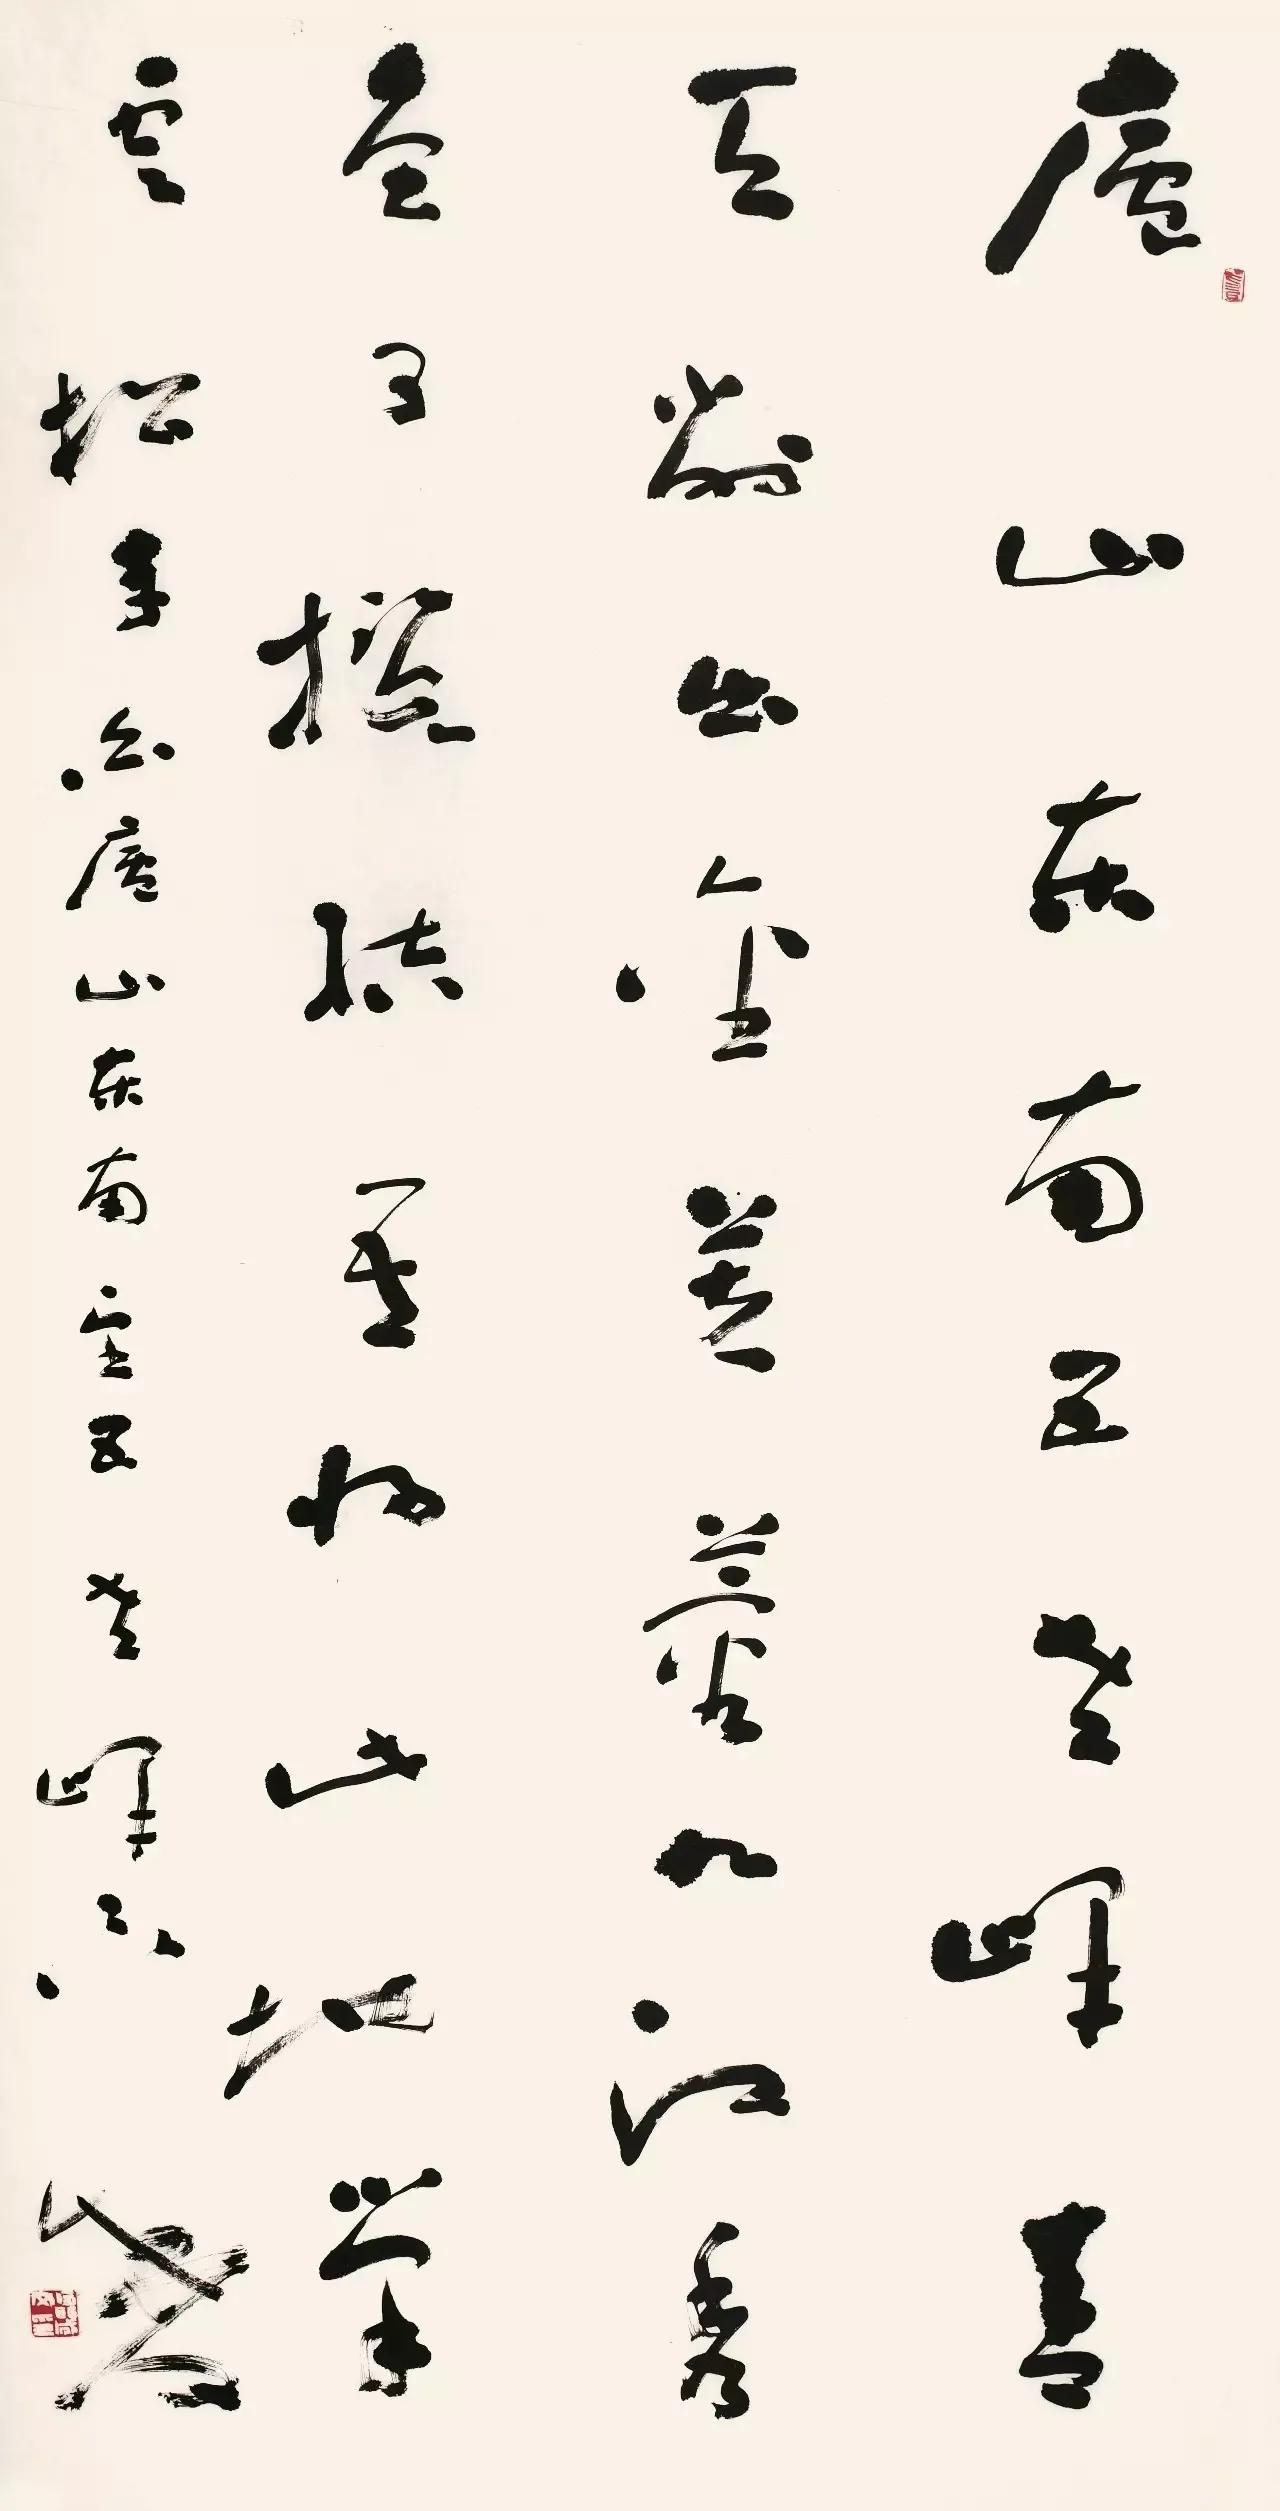 廬山東南五老峰青
天削出金芙蓉九江秀
色可攬結吾將此地巢
雲松李白廬山東南望五老峰